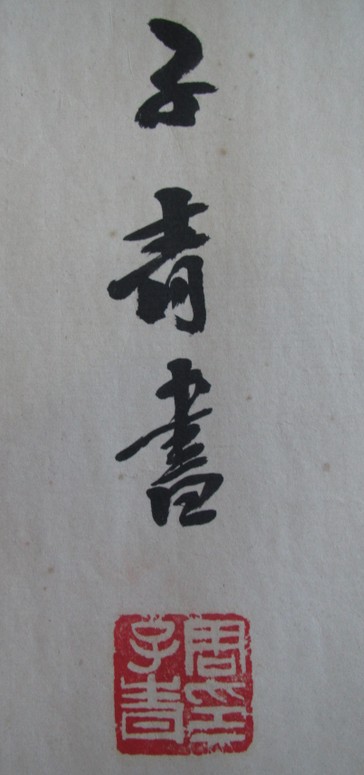 子青書
周印
子青